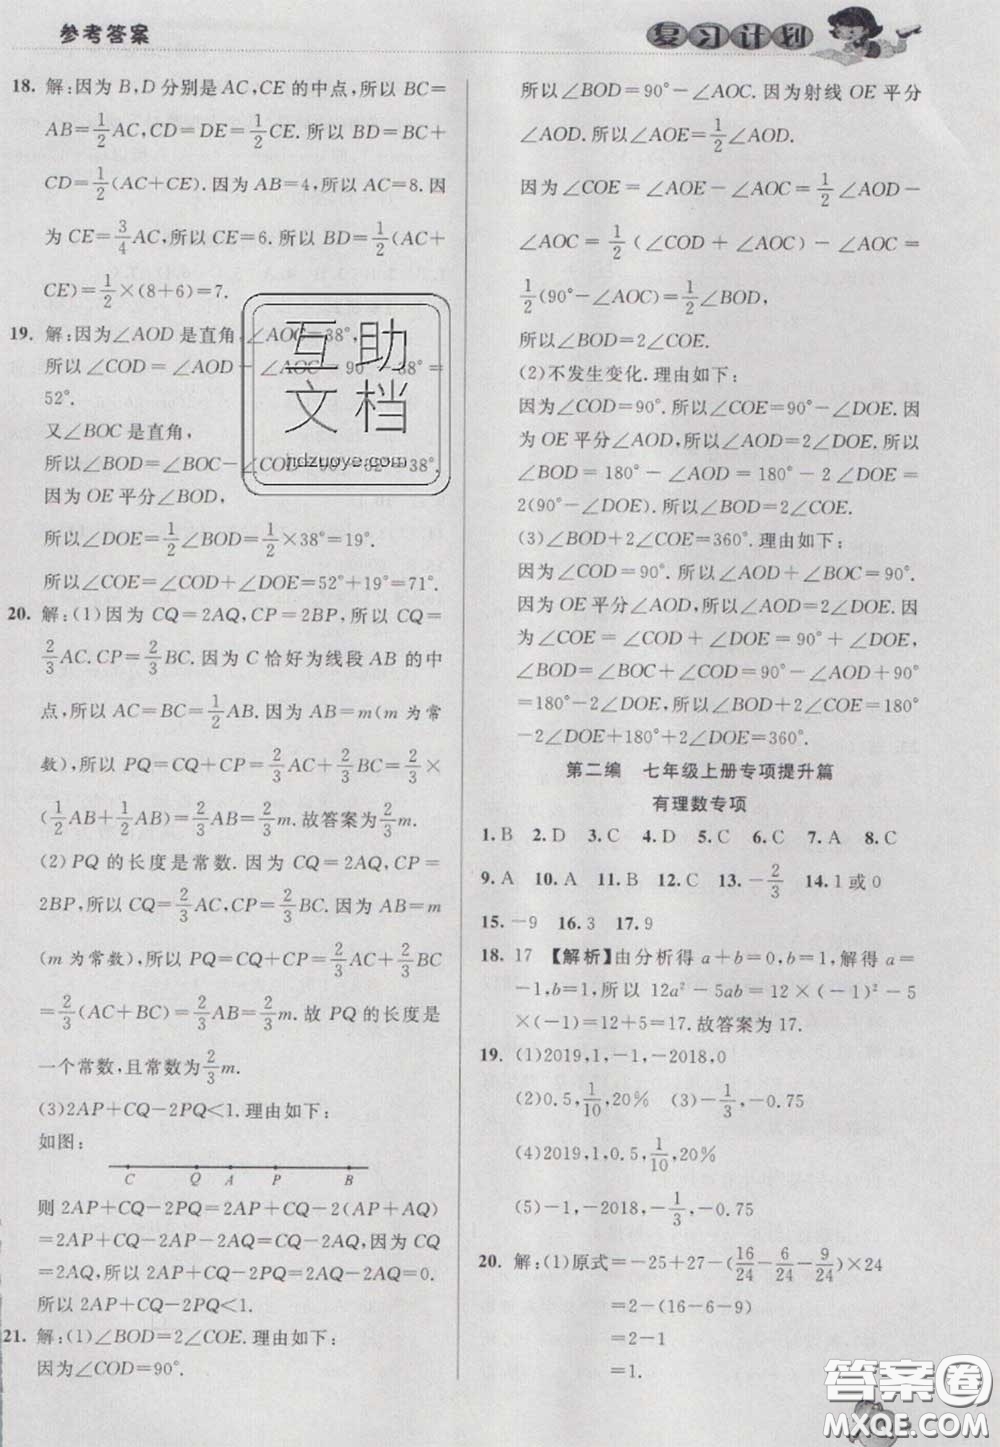 参考答案
复习计划
18. 解:因为 B,D 分别是 AC,CE 的中点,所以 BC=
AB=1/2AC,CD=DE=1/2CE.所以 BD=BC+
CD=1/2(AC+CE).因为 AB=4,所以 AC=8.因
为 CE=3/4AC,所以 CE=6.所以 BD=1/2(AC+
CE)=1/2×(8+6)=7.
19. 解:因为∠AOD 是直角,∠AOC=38°,
所以∠COD=∠AOD-∠AOC=90°-38°=
52°.
又∠BOC 是直角,
所以∠BOD=∠BOC-∠COD=90°-52°=38°.
因为 OE 平分∠BOD,
所以∠DOE=1/2∠BOD=1/2×38°=19°.
所以∠COE=∠COD+∠DOE=52°+19°=71°.
20. 解:(1)因为 CQ=2AQ,CP=2BP,所以 CQ=
2/3AC.CP=2/3BC.因为 C 恰好为线段 AB 的中
点,所以 AC=BC=1/2AB.因为 AB=m(m 为常
数),所以 PQ=CQ+CP=2/3AC+2/3BC=2/3×
(1/2AB+1/2AB)=2/3AB=2/3m.故答案为2/3m.
(2) PQ 的长度是常数.因为 CQ=2AQ,CP=
2BP,所以 CQ=2/3AC,CP=2/3BC.因为 AB=m
(m 为常数),所以 PQ=CQ+CP=2/3AC+2/3BC
=2/3(AC+BC)=2/3AB=2/3m.故 PQ 的长度是
一个常数,且常数为2/3m.
(3)2AP+CQ-2PQ<1.理由如下:
如图:
C Q A P B
则 2AP+CQ-2PQ=2AP+CQ-2(AP+AQ)
=2AP+CQ-2AP-2AQ=CQ-2AQ.因为 CQ
=2AQ,所以 2AP+CQ-2PQ=2AQ-2AQ=0.
所以 2AP+CQ-2PQ<1.
21. 解:(1)∠BOD=2∠COE.理由如下:
因为∠COD=90°.
所以∠BOD=90°-∠AOC.因为射线 OE 平分
∠AOD.所以∠AOE=1/2∠AOD.
因为∠COE=∠AOE-∠AOC=1/2∠AOD-
∠AOC=1/2(∠COD+∠AOC)-∠AOC=
1/2(90°-∠AOC)=1/2∠BOD,
所以∠BOD=2∠COE.
(2)不发生变化.理由如下:
因为∠COD=90°.所以∠COE=90°-∠DOE.因
为 OE 平分∠AOD,所以∠AOD=2∠DOE.所以
∠BOD=180°-∠AOD=180°-2∠DOE=
2(90°-∠DOE).所以∠BOD=2∠COE.
(3)∠BOD+2∠COE=360°.理由如下:
因为∠COD=90°,所以∠AOD+∠BOC=90°.
因为 OE 平分∠AOD,所以∠AOD=2∠DOE.因
为∠COD=90°,所以∠COE=90°+∠DOE,
∠BOD=∠BOC+∠COD=90°-∠AOD+90°
=180°-2∠DOE,所以∠BOD+2∠COE=180°
-2∠DOE+180°+2∠DOE=360°.
第二编 七年级上册专项提升篇
有理数专项
1. B 2. D 3. C 4. D 5. C 6. C 7. A 8. C
9. A 10. A 11. B 12. C 13. -2/3 14. 1 或 0
15. -9 16. 3 17. 9
18. 17 【解析】由分析得 a+b=0,b=1,解得 a=
-1,b=1,所以 12a²-5ab=12×(-1)²-5
×(-1)=12+5=17.故答案为 17.
19. (1)2019,1,-1,-2018,0
(2)0.5,1/10,20% (3)-1/3,-0.75
(4)2019,1,0.5,1/10,20%
(5)-1,-2018,-1/3,-0.75
20. 解:(1)原式=-25+27-(16/24-6/24-9/24)×24
=2-(16-6-9)
=2-1
=1.
互助
文档
hdzuoye.com
答案圈
MXQE.COM